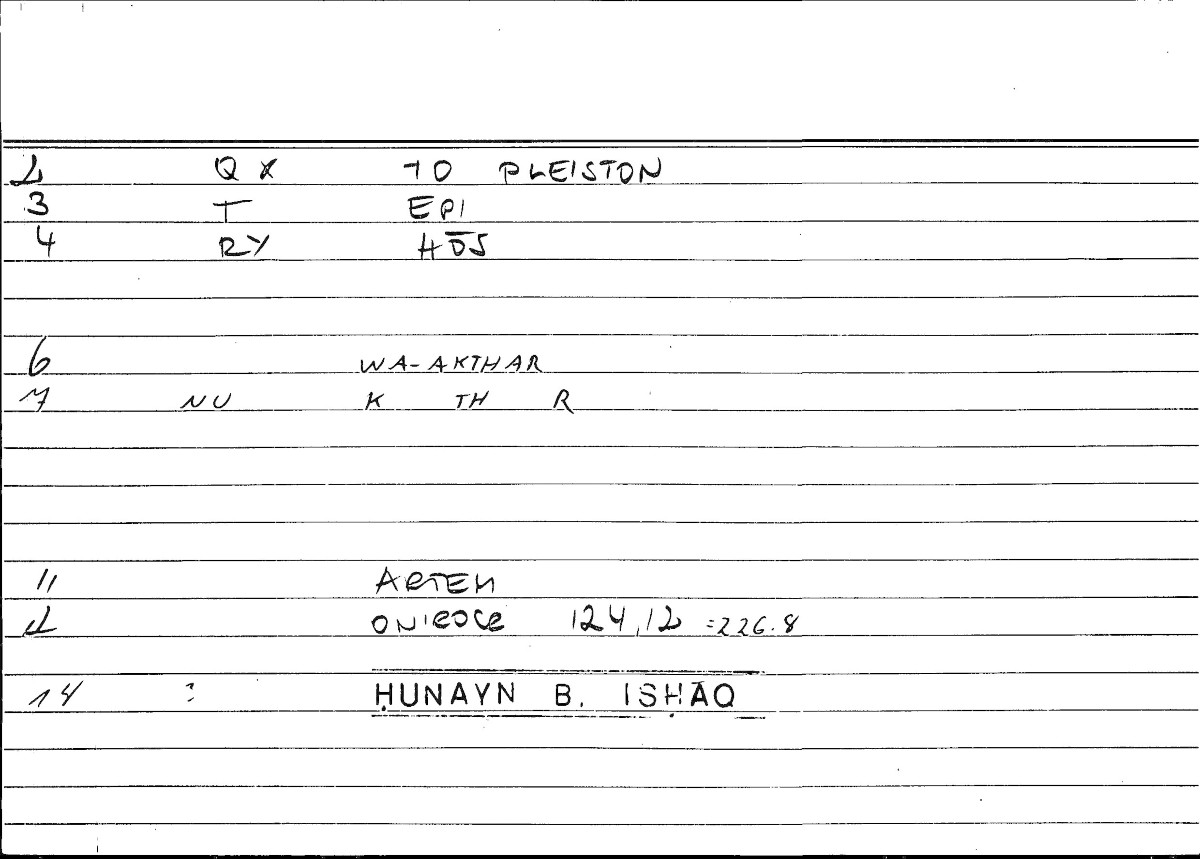 2 QX TO PLEISTON
3 T EPI
4 RY HŌS
6 WA-AKTHAR
7 NU K TH R
11 ARTEM
12 ONIROCR 124,12 =226.8
14 : ḤUNAYN B. ISḤĀQ